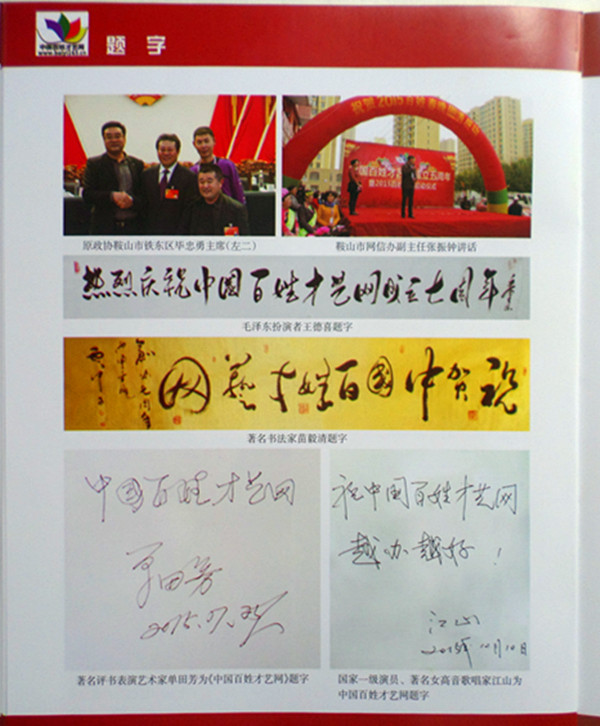 中国百姓才艺网
题字
祝贺2015百姓春晚
国百姓才艺网成立五周年
原政协鞍山市铁东区毕忠勇主席(左二)
鞍山市网信办副主任张振钟讲话
热烈庆祝中国百姓才艺网成立七周年
毛泽东扮演者王德喜题字
祝贺中国百姓才艺网
著名书法家苗毅清题字
中国百姓才艺网
单田芳
2015.07.
祝中国百姓才艺网
越办越好!
江山
2015年10月10日
著名评书表演艺术家单田芳为《中国百姓才艺网》题字
国家一级演员、著名女高音歌唱家江山为
中国百姓才艺网题字